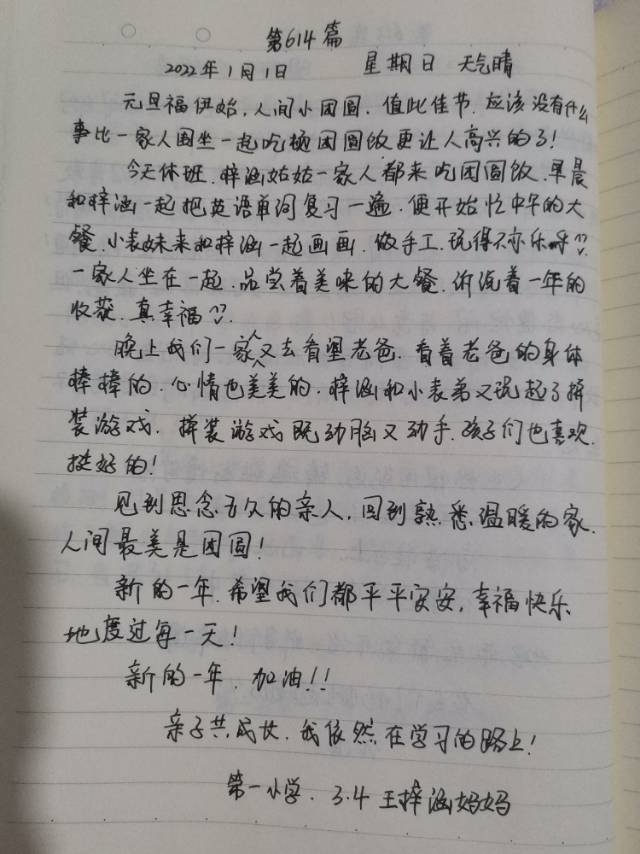 第614篇
2022年1月1日 星期日 天气晴
元旦福伊始,人间小团圆.值此佳节.应该没有什么
事比一家人围坐一起吃顿团圆饭更让人高兴的了!
今天休班.梓涵姑姑一家人都来吃团圆饭.早晨
和梓涵一起把英语单词复习一遍.便开始忙中午的大
餐.小表妹来和梓涵一起画画.做手工.玩得不亦乐乎
一家人坐在一起.品尝着美味的大餐.诉说着一年的
收获.真幸福
晚上我们一家人又去看望老爸.看着老爸的身体
棒棒的.心情也美美的.梓涵和小表弟又玩起了拼
装游戏.拼装游戏既动脑又动手.孩子们也喜欢.
挺好的!
见到思念已久的亲人,回到熟悉温暖的家.
人间最美是团圆!
新的一年.希望我们都平平安安,幸福快乐
地度过每一天!
新的一年.加油!!
亲子共成长.我依然在学习的路上!
第一小学.3.4 王梓涵妈妈